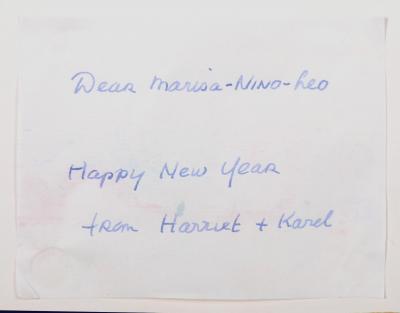 Dear Marisa-Nino-Leo
Happy New Year
from Harriet + Karel